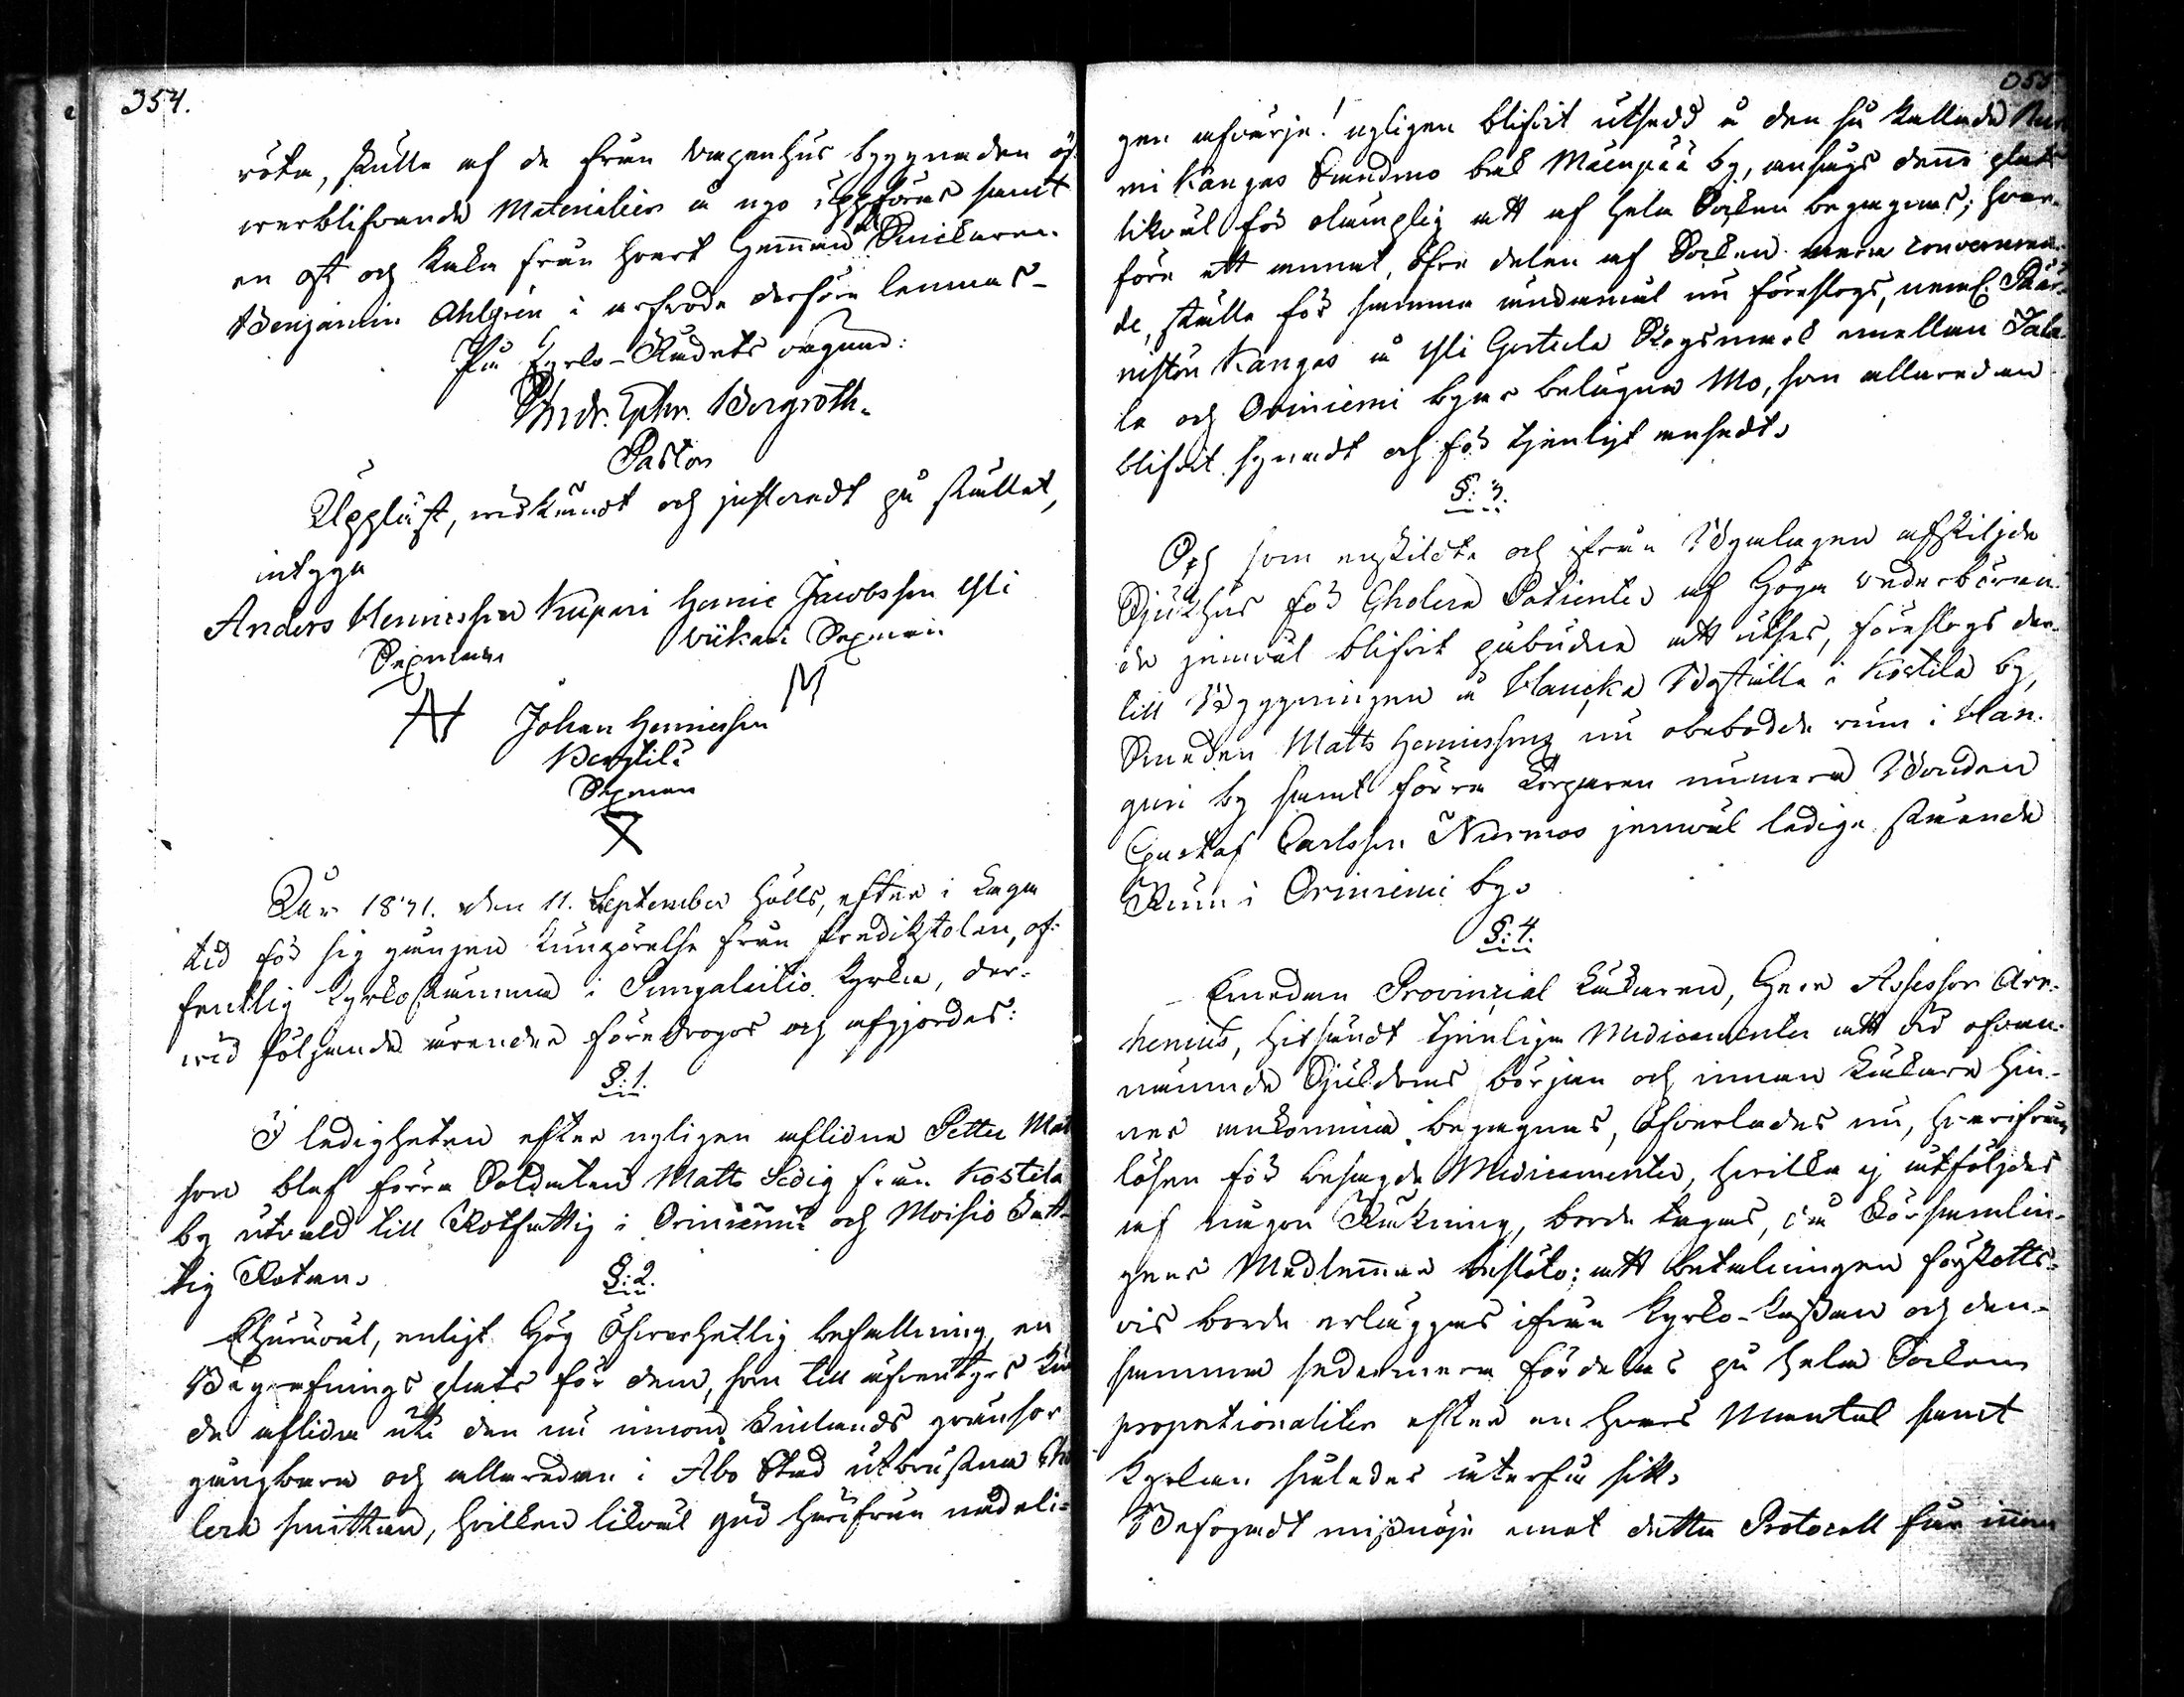 354.
röta, skulle af de från vapenhus byggnaden öf-
werblifvande Materialier å nyo uppföras samt
en ost och kaka från hvart Hemman till Snickaren
Benjamin Ahlgrén i arfvode derföre lemnas.
På Kyrko-Rådets vägnar:
Andr. Ephr. Bergroth.
Pastor
Uppläst, vidkändt och justeradt på stället,
intyga
Anders Hennicsson Kupari Hennic Jacobsson Yli
Sexman Wükari Sexman
Johan Hennicsson
Penttilä
Sexman
År 1831. den 11. September hölls, efter i laga
tid för sig gången kungörelse från Predikstolen, of-
fentlig Kyrkostämma i Pungalaitio Kyrka, der-
wid följande ärenden föredrogos och afgjordes:
§: 1.
I ledigheten efter nyligen aflidne Petter Mat
son blef förra Soldaten Matts Ledig från Kostila
by utvald till Rotfattig i Oriniemi och Moisio Fatt-
tig Rotan.
§: 2.
Ehuruväl, enligt Hög Öfverhetlig befallning, en
Begrafnings plats för dem, som till äfventyrs kun
de aflida uti den nu innom Finlands gränsor
gångbara och allaredan i Åbo Stad utbrustna Cho
lera smittan, hvilken likväl Gud härifrån nådeli-
355
gen afvärje! nyligen blifvit utsedd å den så kallade
mi Kangas Sandmo bak Mäenpää by, ansågs denne plats
likväl för olämplig att af hela Socken begagnas; hvar-
före ett annat, öfre delen af Socken mera convenieran-
de, ställe för samma ändamål nu föreslogs, neml.
niston Kangas å Yli Gertula Skogsmark mellan Tala-
la och Oriniemi byar belägna Mo, som allaredan
blifvit synadt och för tjenligt ansedt.
§: 3.
Och som enskildte och ifrån Byalagen afskiljde
Sjukhus för Cholera Patienter af Höga vederböran-
de jemväl blifvit påbudne att utses, föreslogs der-
till Byggningen å Haucka Boställe i Kostila by,
Smeden Matts Hennicssons nu obebodda rum i Han-
guri by samt förra Torparen numera Bonden
Gustaf Carlsson Nurmos jemväl ledige stående
Rum i Oriniemi by.
§: 4.
Emedan Provinzial Läkaren, Herr Assessor Arr-
henius, hitsändt tjenliga Medicamenter att vid ofvan-
nämnde Sjukdoms början och innan Läkare hin-
ner ankomma begagnas, öfverlades nu, hvarifrån
lösen för besagde Medicamenter, hvilka ej åtföljdes
af någon Räkning, borde tagas, då Församlin-
gens Medlemmar beslöto: att betalningen förskotts-
vis borde erläggas ifrån Kyrko-Kassan och den-
samma sedermera fördelas på hela Socken
proportionaliter efter en hvars Mantal samt
Kyrkan således återfå sitt.
Befogadt missnöje emot detta Protocoll får innom